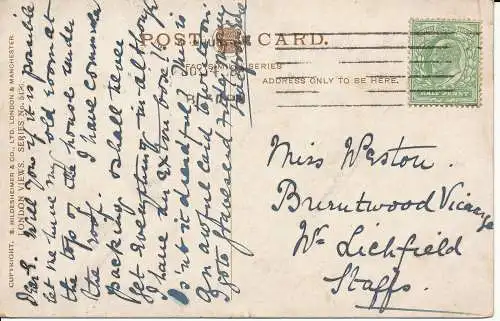 POST CARD.
FACSIMILE SERIES
ADDRESS ONLY TO BE HERE.
HALF PENNY
COPYRIGHT. S. HILDESHEIMER & CO., LTD. LONDON & MANCHESTER.
LONDON VIEWS. SERIES No.
Dear E. Will you if it is possible
let me have my old room at
the top of the house under
the roof. I have commenced
packing & shall never
get everything in although
I have an extra box!
Is'nt it dreadful? I have
an awful cold too.
to Gravesend Friday
Miss Weston.
Burntwood Vicarage
Nr. Lichfield
Staffs.